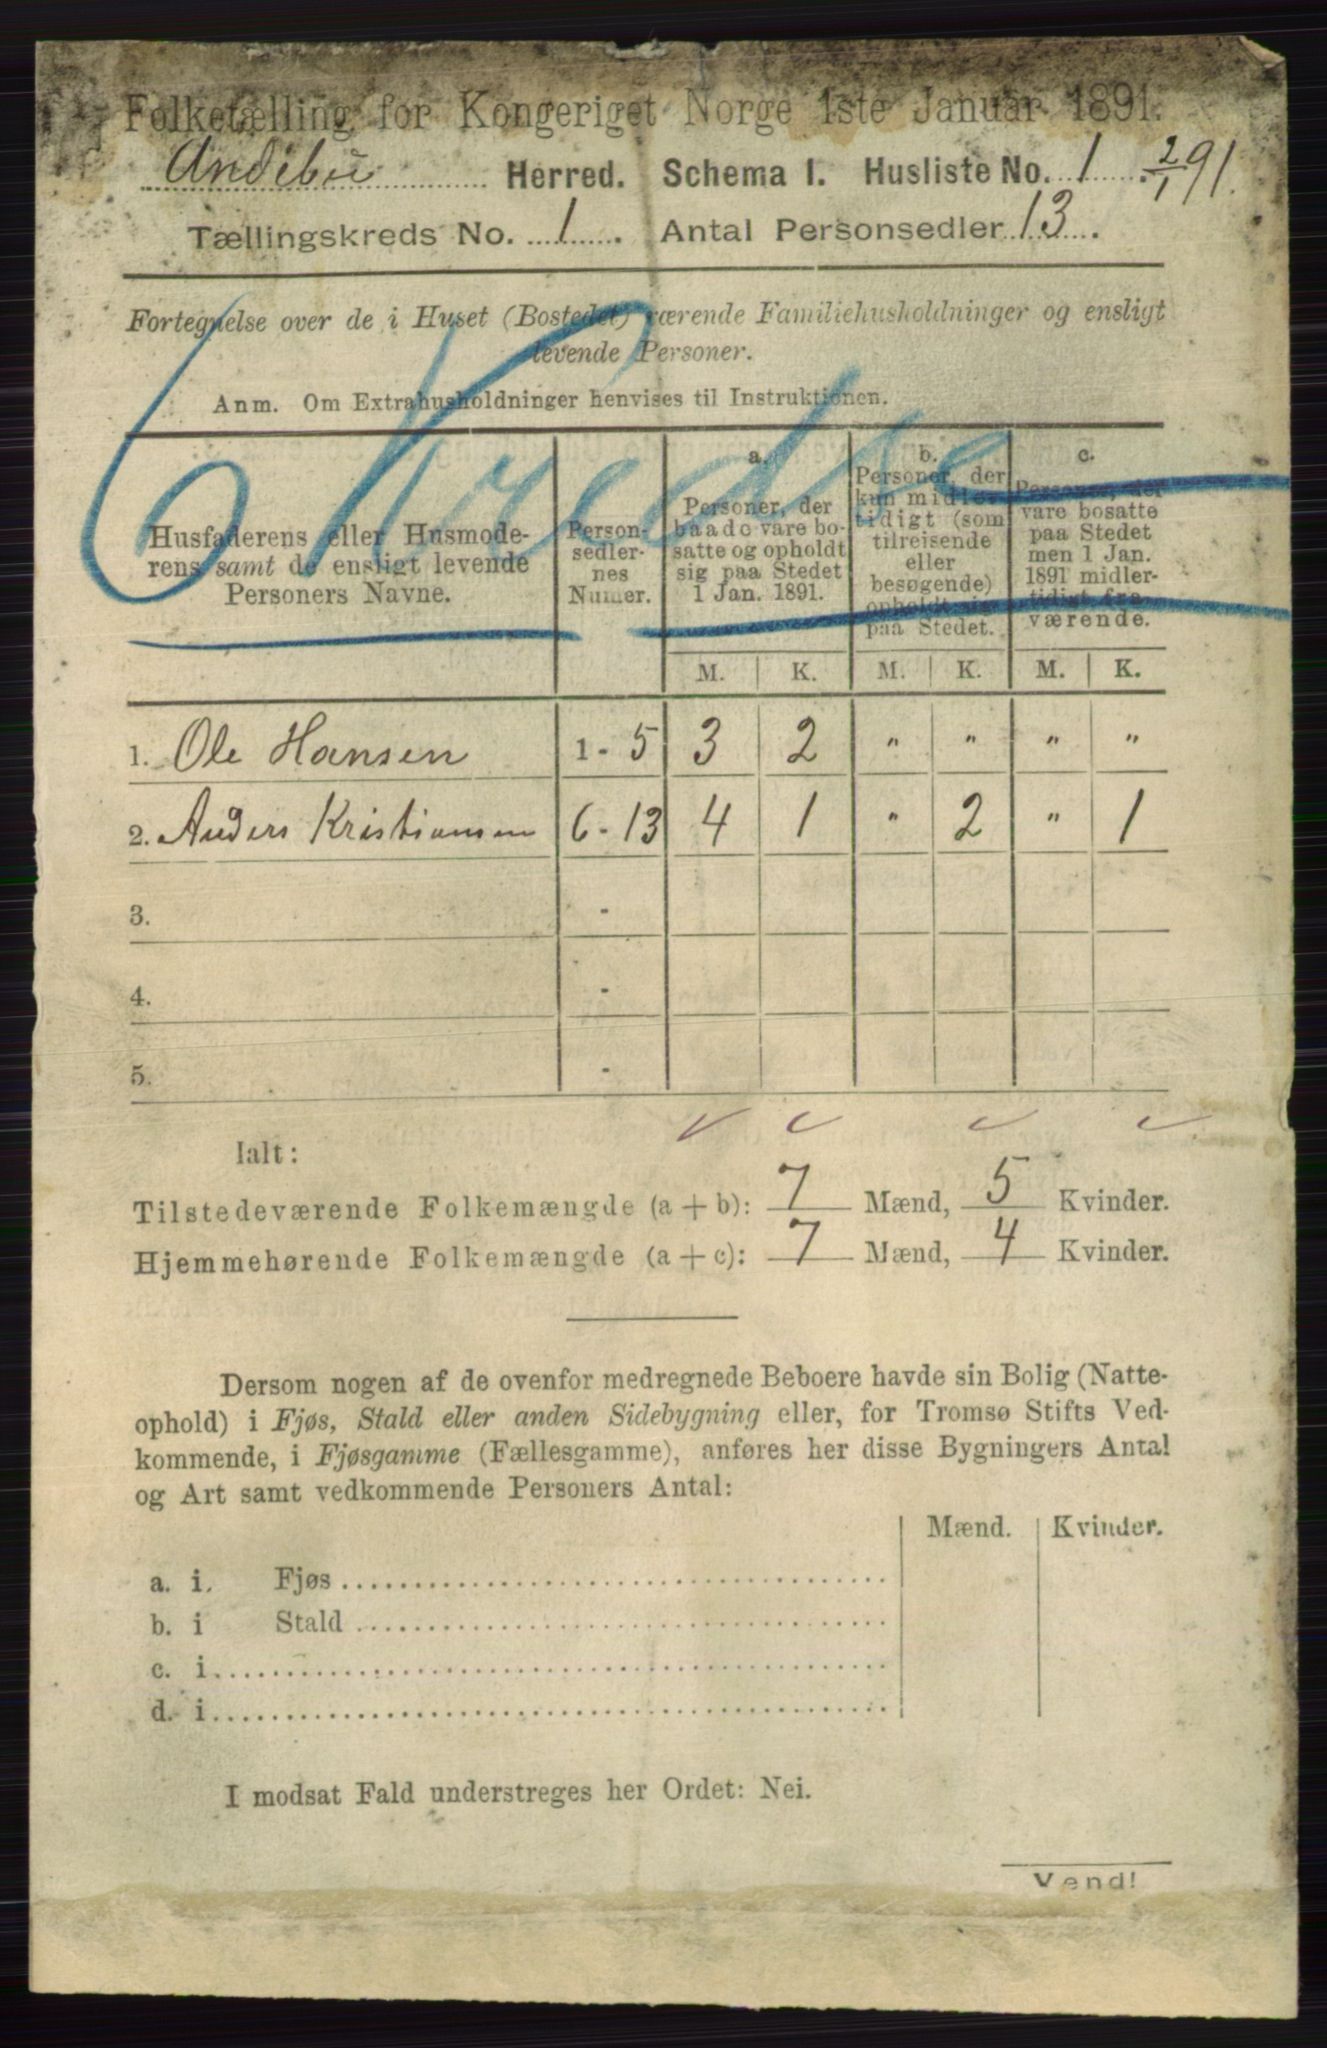 Folketælling for Kongeriget Norge 1ste Januar 1891.
Andebu Herred. Schema I. Husliste No. 1. 2/1 91.
Tællingskreds No. 1. Antal Personsedler 13.
Fortegnelse over de i Huset (Bostedet) værende Familiehusholdninger og ensligt
levende Personer.
Anm. Om Extrahusholdninger henvises til Instruktionen.
6 Kredse
Husfaderens eller Husmode-
rens samt de ensligt levende
Personers Navne.
Person-
sedler-
nes
Numer.
a.
Personer, der
baade vare bo-
satte og opholdt
sig paa Stedet
1 Jan. 1891.
b.
Personer, der
kun midler-
tidigt (som
tilreisende
eller
besøgende)
opholdt sig
paa Stedet.
c.
Personer, der
vare bosatte
paa Stedet
men 1 Jan.
1891 midler-
tidigt fra-
værende.
M. K. M. K. M. K.
1. Ole Hansen 1 - 5 3 2 " " " "
2. Anders Kristiansen 6 - 13 4 1 " 2 " 1
3. -
4. -
5. -
Ialt:
Tilstedeværende Folkemængde (a + b): 7 Mænd, 5 Kvinder.
Hjemmehørende Folkemængde (a + c): 7 Mænd, 4 Kvinder.
Dersom nogen af de ovenfor medregnede Beboere havde sin Bolig (Natte-
ophold) i Fjøs, Stald eller anden Sidebygning eller, for Tromsø Stifts Ved-
kommende, i Fjøsgamme (Fællesgamme), anføres her disse Bygningers Antal
og Art samt vedkommende Personers Antal:
Mænd. Kvinder.
a. i. Fjøs
b. i Stald
c. i
d. i
I modsat Fald understreges her Ordet: Nei.
Vend!